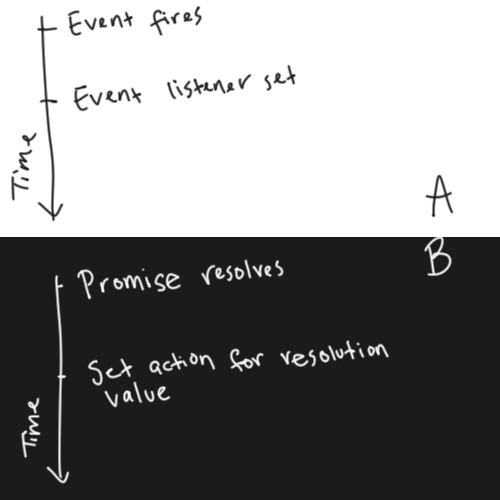 Event fires
Event listener set
Time
A
B
Promise resolves
Set action for resolution
value
Time